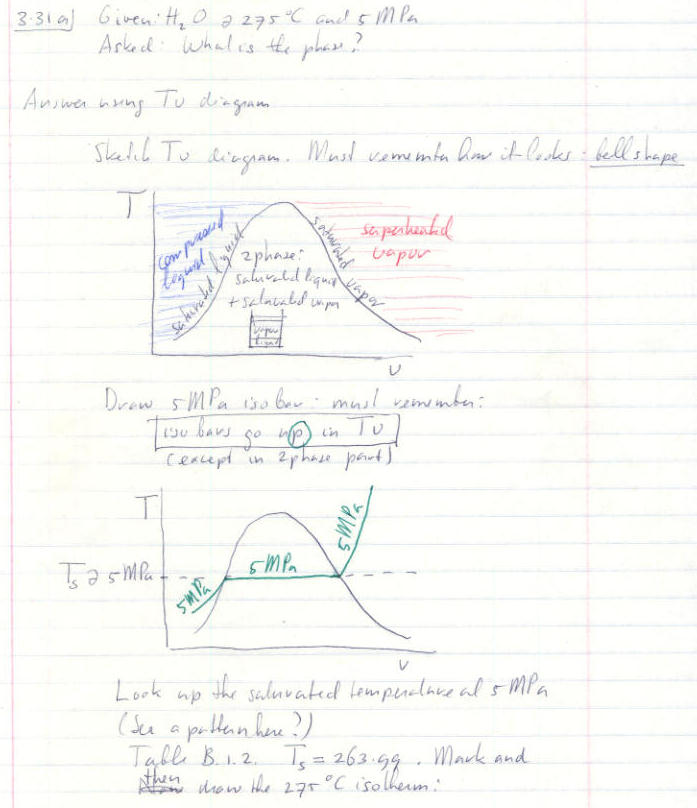 3.31 a) Given: H2O @ 275 °C and 5 MPa
Asked: What is the phase?
Answer using Tv diagram
Sketch Tv diagram. Must remember how it looks: bell shape
T
compressed liquid
saturated liquid
2 phase:
saturated liquid
+ saturated vapor
vapor
liquid
saturated vapor
superheated
vapor
v
Draw 5 MPa isobar: must remember:
isobars go up in Tv
(except in 2 phase part)
T
Ts @ 5 MPa
5 MPa
5 MPa
5 MPa
v
Look up the saturated temperature at 5 MPa
(See a pattern here?)
Table B.1.2. Ts = 263.99. Mark and
then draw the 275 °C isotherm: